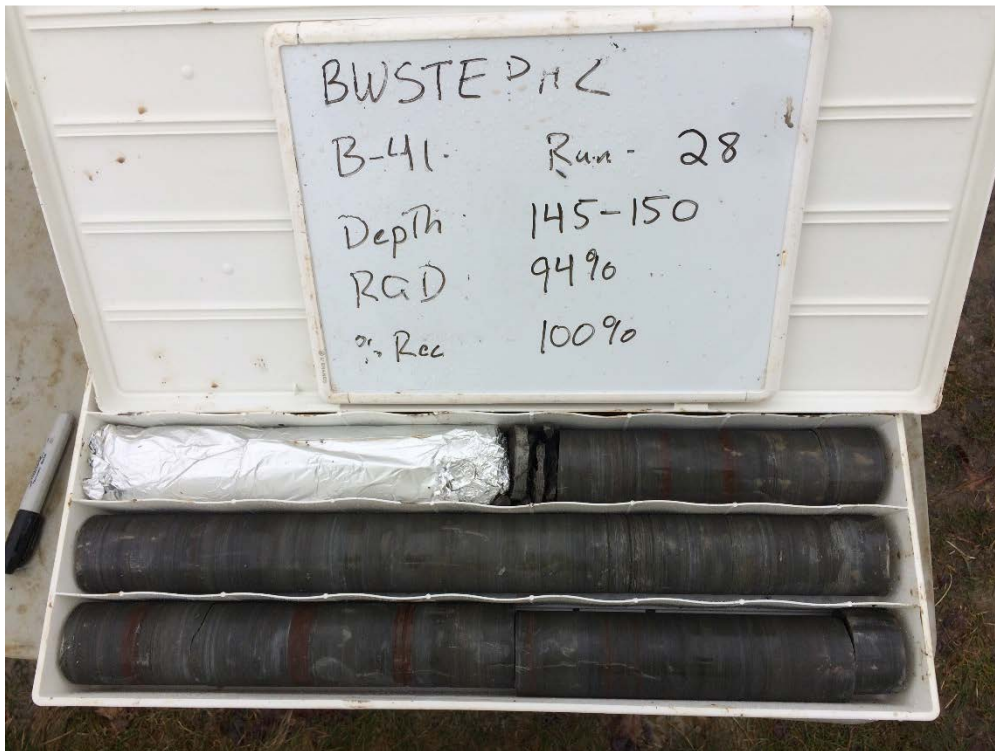 BWSTE PH2
B-41. Run - 28
Depth 145-150
RQD 94%
% Rec 100%